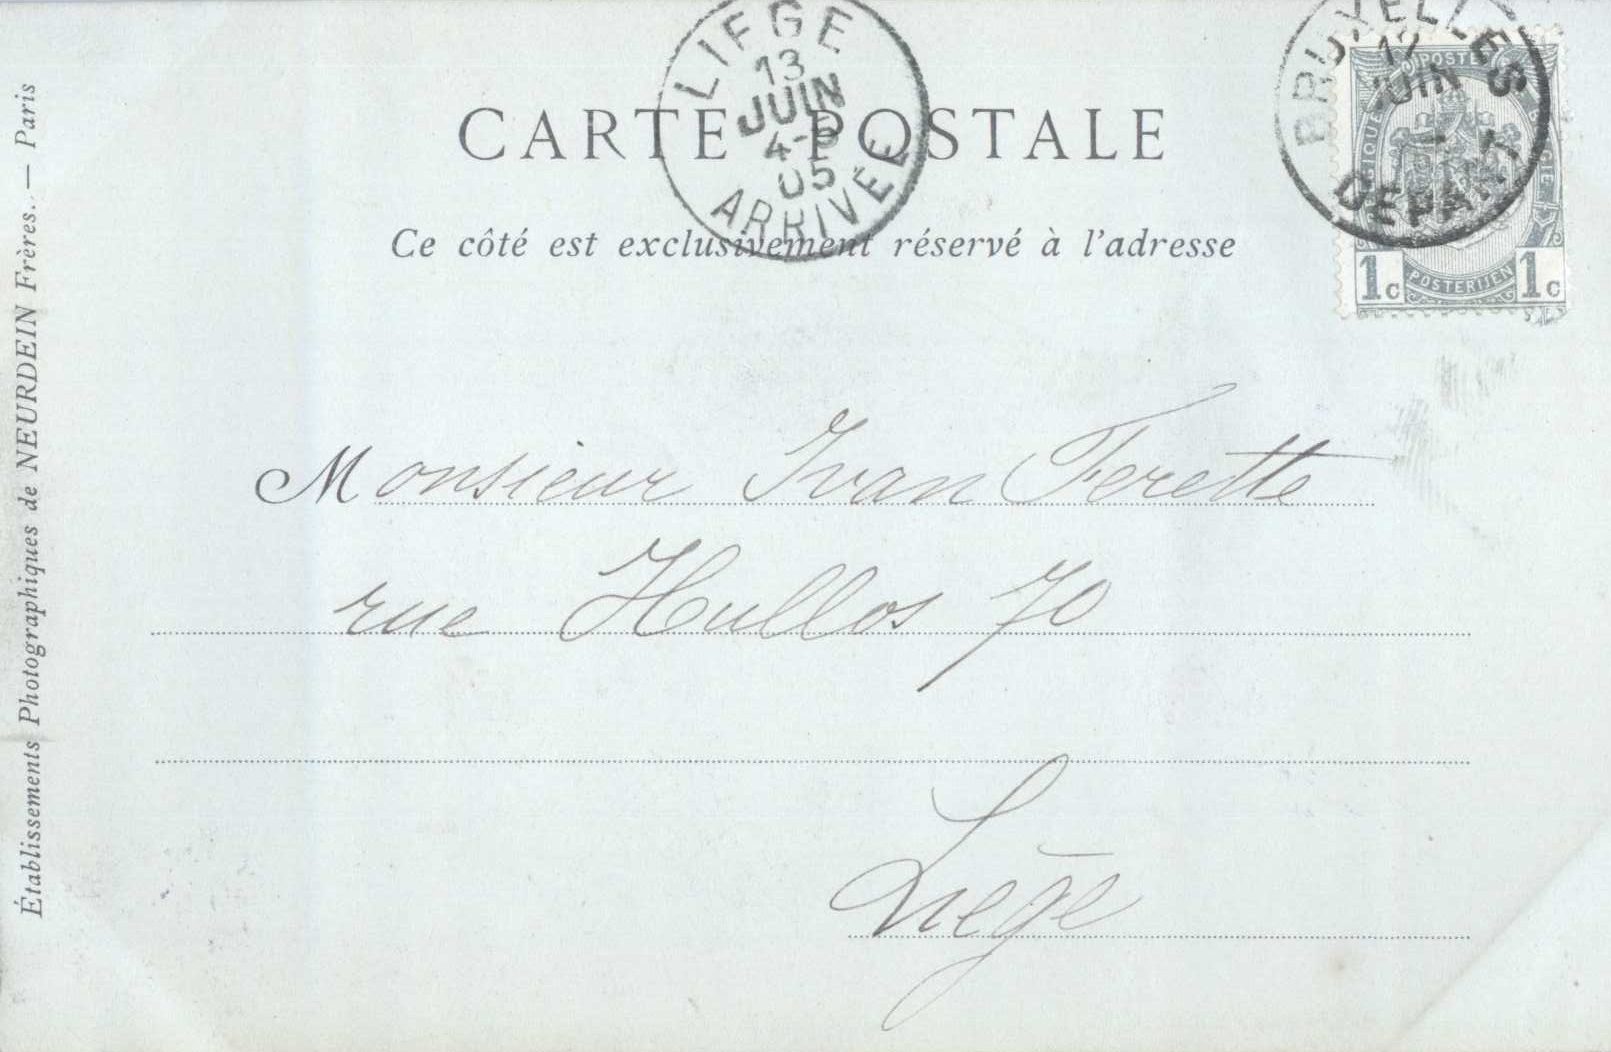 LIEGE
13
JUIN
4-5
05
ARRIVÉE
BRUXELLES
12
JUIN
DEPART
POSTES
BELGIQUE
POSTERIJEN
1c 1c
CARTE POSTALE
Ce côté est exclusivement réservé à l'adresse
Monsieur Ivan Ferette
rue Hullos 70
Liège
Établissements Photographiques de NEURDEIN Frères. — Paris